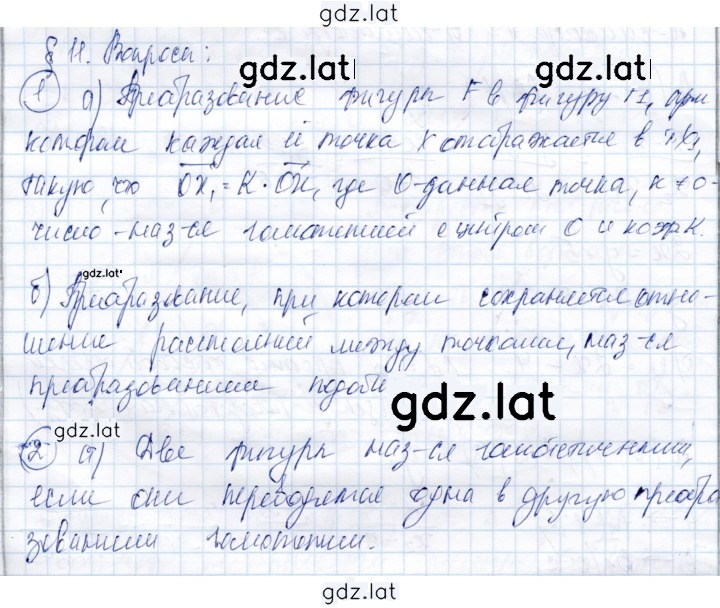 gdz.lat
§ 11. Вопросы:
gdz.lat
1 а) Преобразование фигуры F в фигуру F1, при
котором каждая её точка X отображается в т. X1,
такую, что OX1 = K · OX, где O-данная точка, к ≠ 0-
число -наз-ся гомотетией с центром O и коэф K.
gdz.lat
б) Преобразование, при котором сохраняется отно-
шение расстояний между точками, наз-ся
преобразованием подоби
gdz.lat
gdz.lat
2 а) Две фигуры наз-ся гомотетичными,
если они переводятся одна в другую преобра
зованиями гомотетии.
gdz.lat